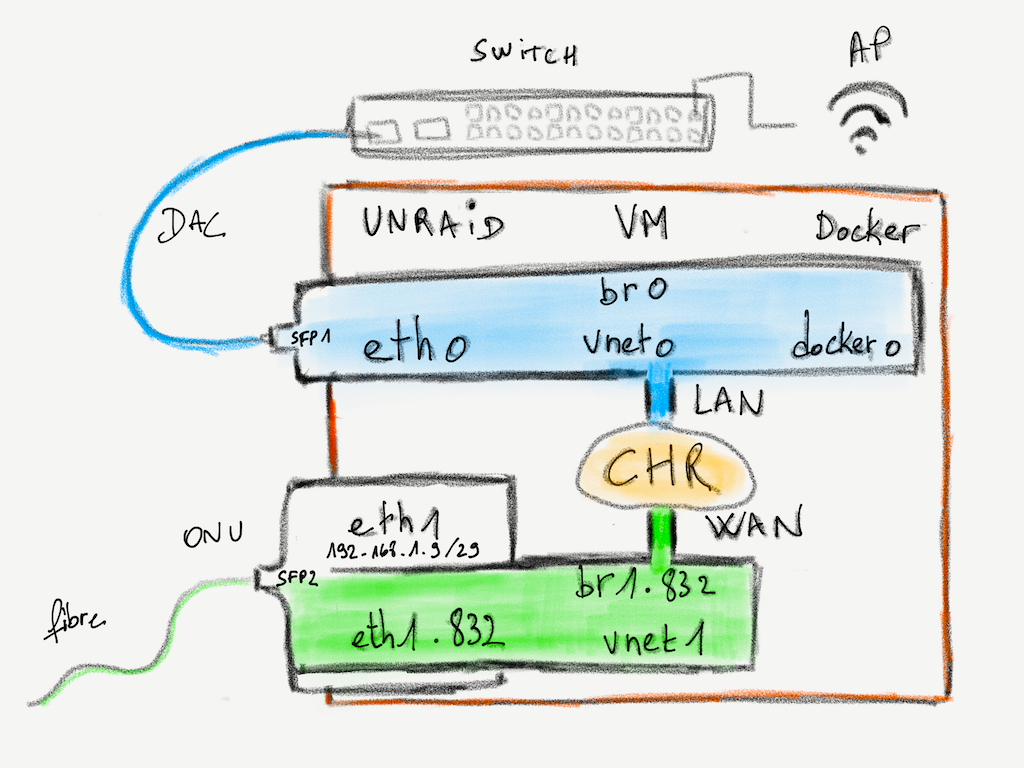 SWiTCH
AP
DAC
UNRAiD
VM
Docker
br0
SFP1
eth0
vnet0
docker0
LAN
CHR
WAN
ONU
eth1
192.168.1.9/29
SFP2
br1.832
fibre
eth1.832
vnet1